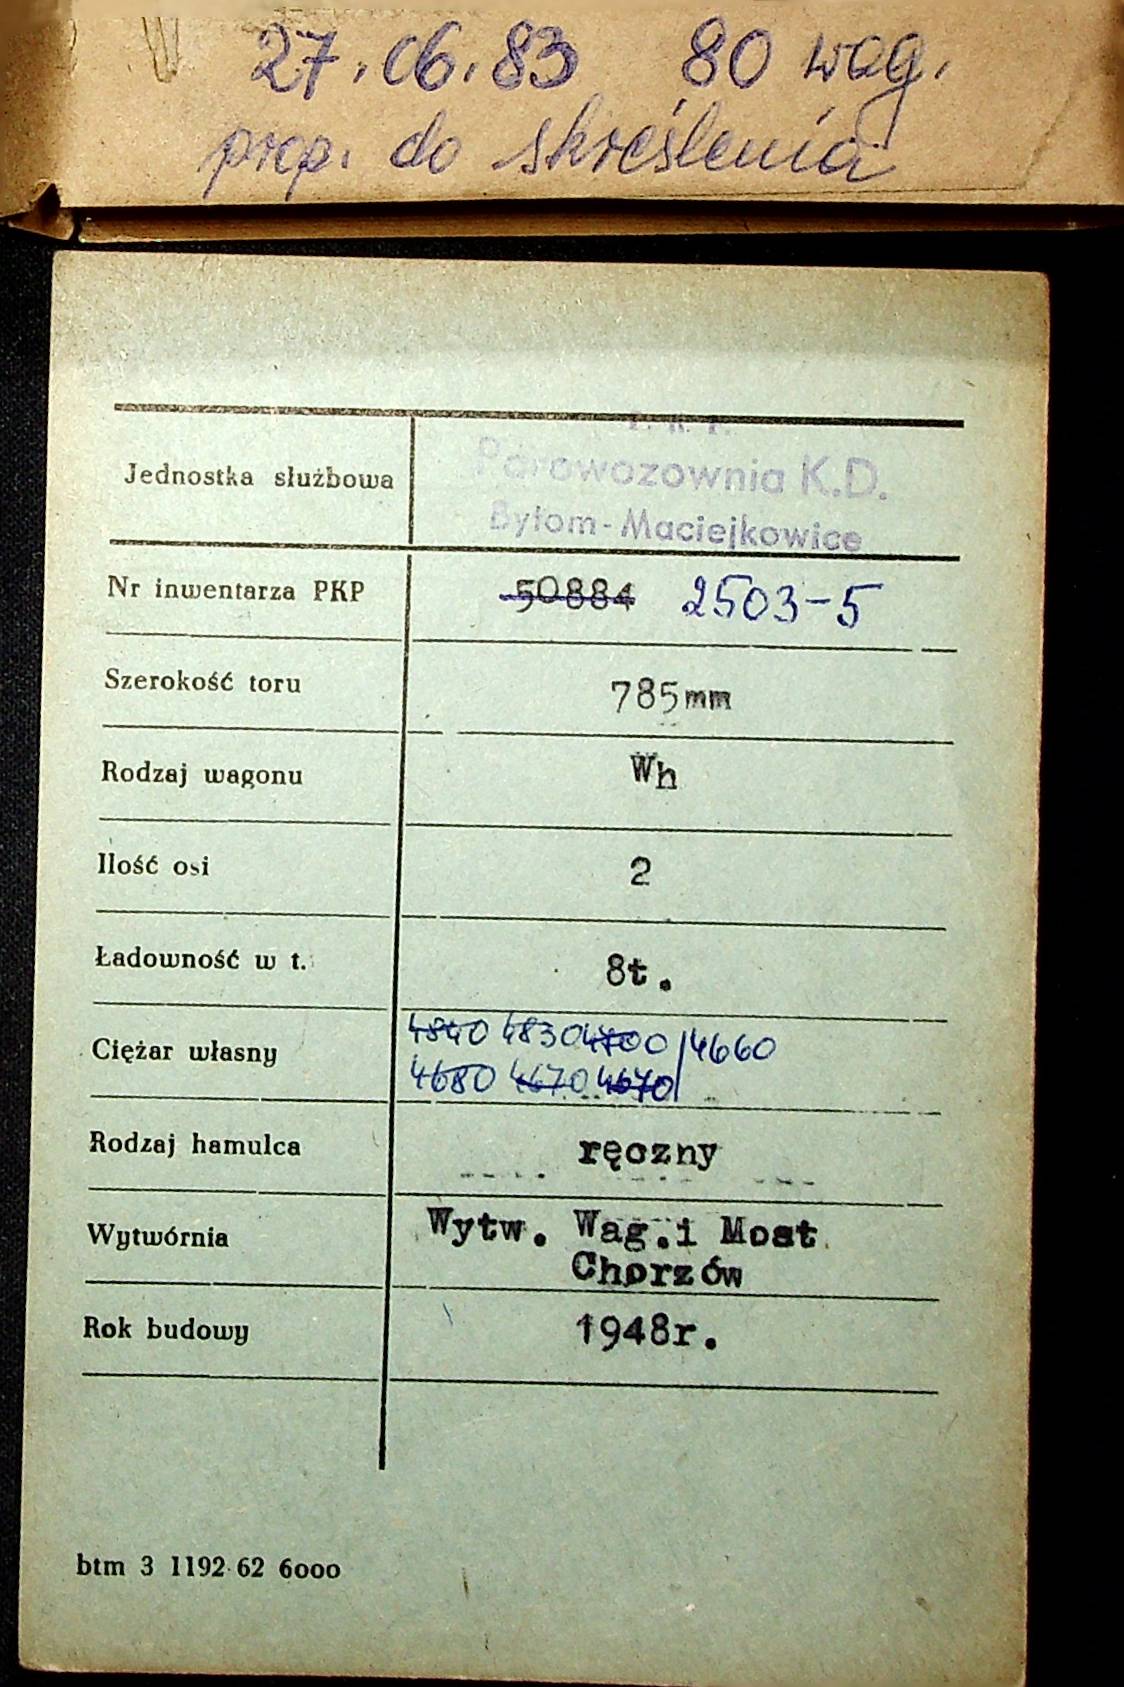 27.06.83 80 wag.
prop. do skreślenia
P. K. P.
Jednostka służbowa Parowozownia K.D.
Bytom-Maciejkowice
Nr inwentarza PKP 50884 2503-5
Szerokość toru 785mm
Rodzaj wagonu Wh
Ilość osi 2
Ładowność w t. 8t.
4840 4830 4700 4660
Ciężar własny
4680 4670 4670
Rodzaj hamulca ręczny
Wytwórnia Wytw. Wag.i Most
Chorzów
Rok budowy 1948r.
btm 3 1192 62 6000